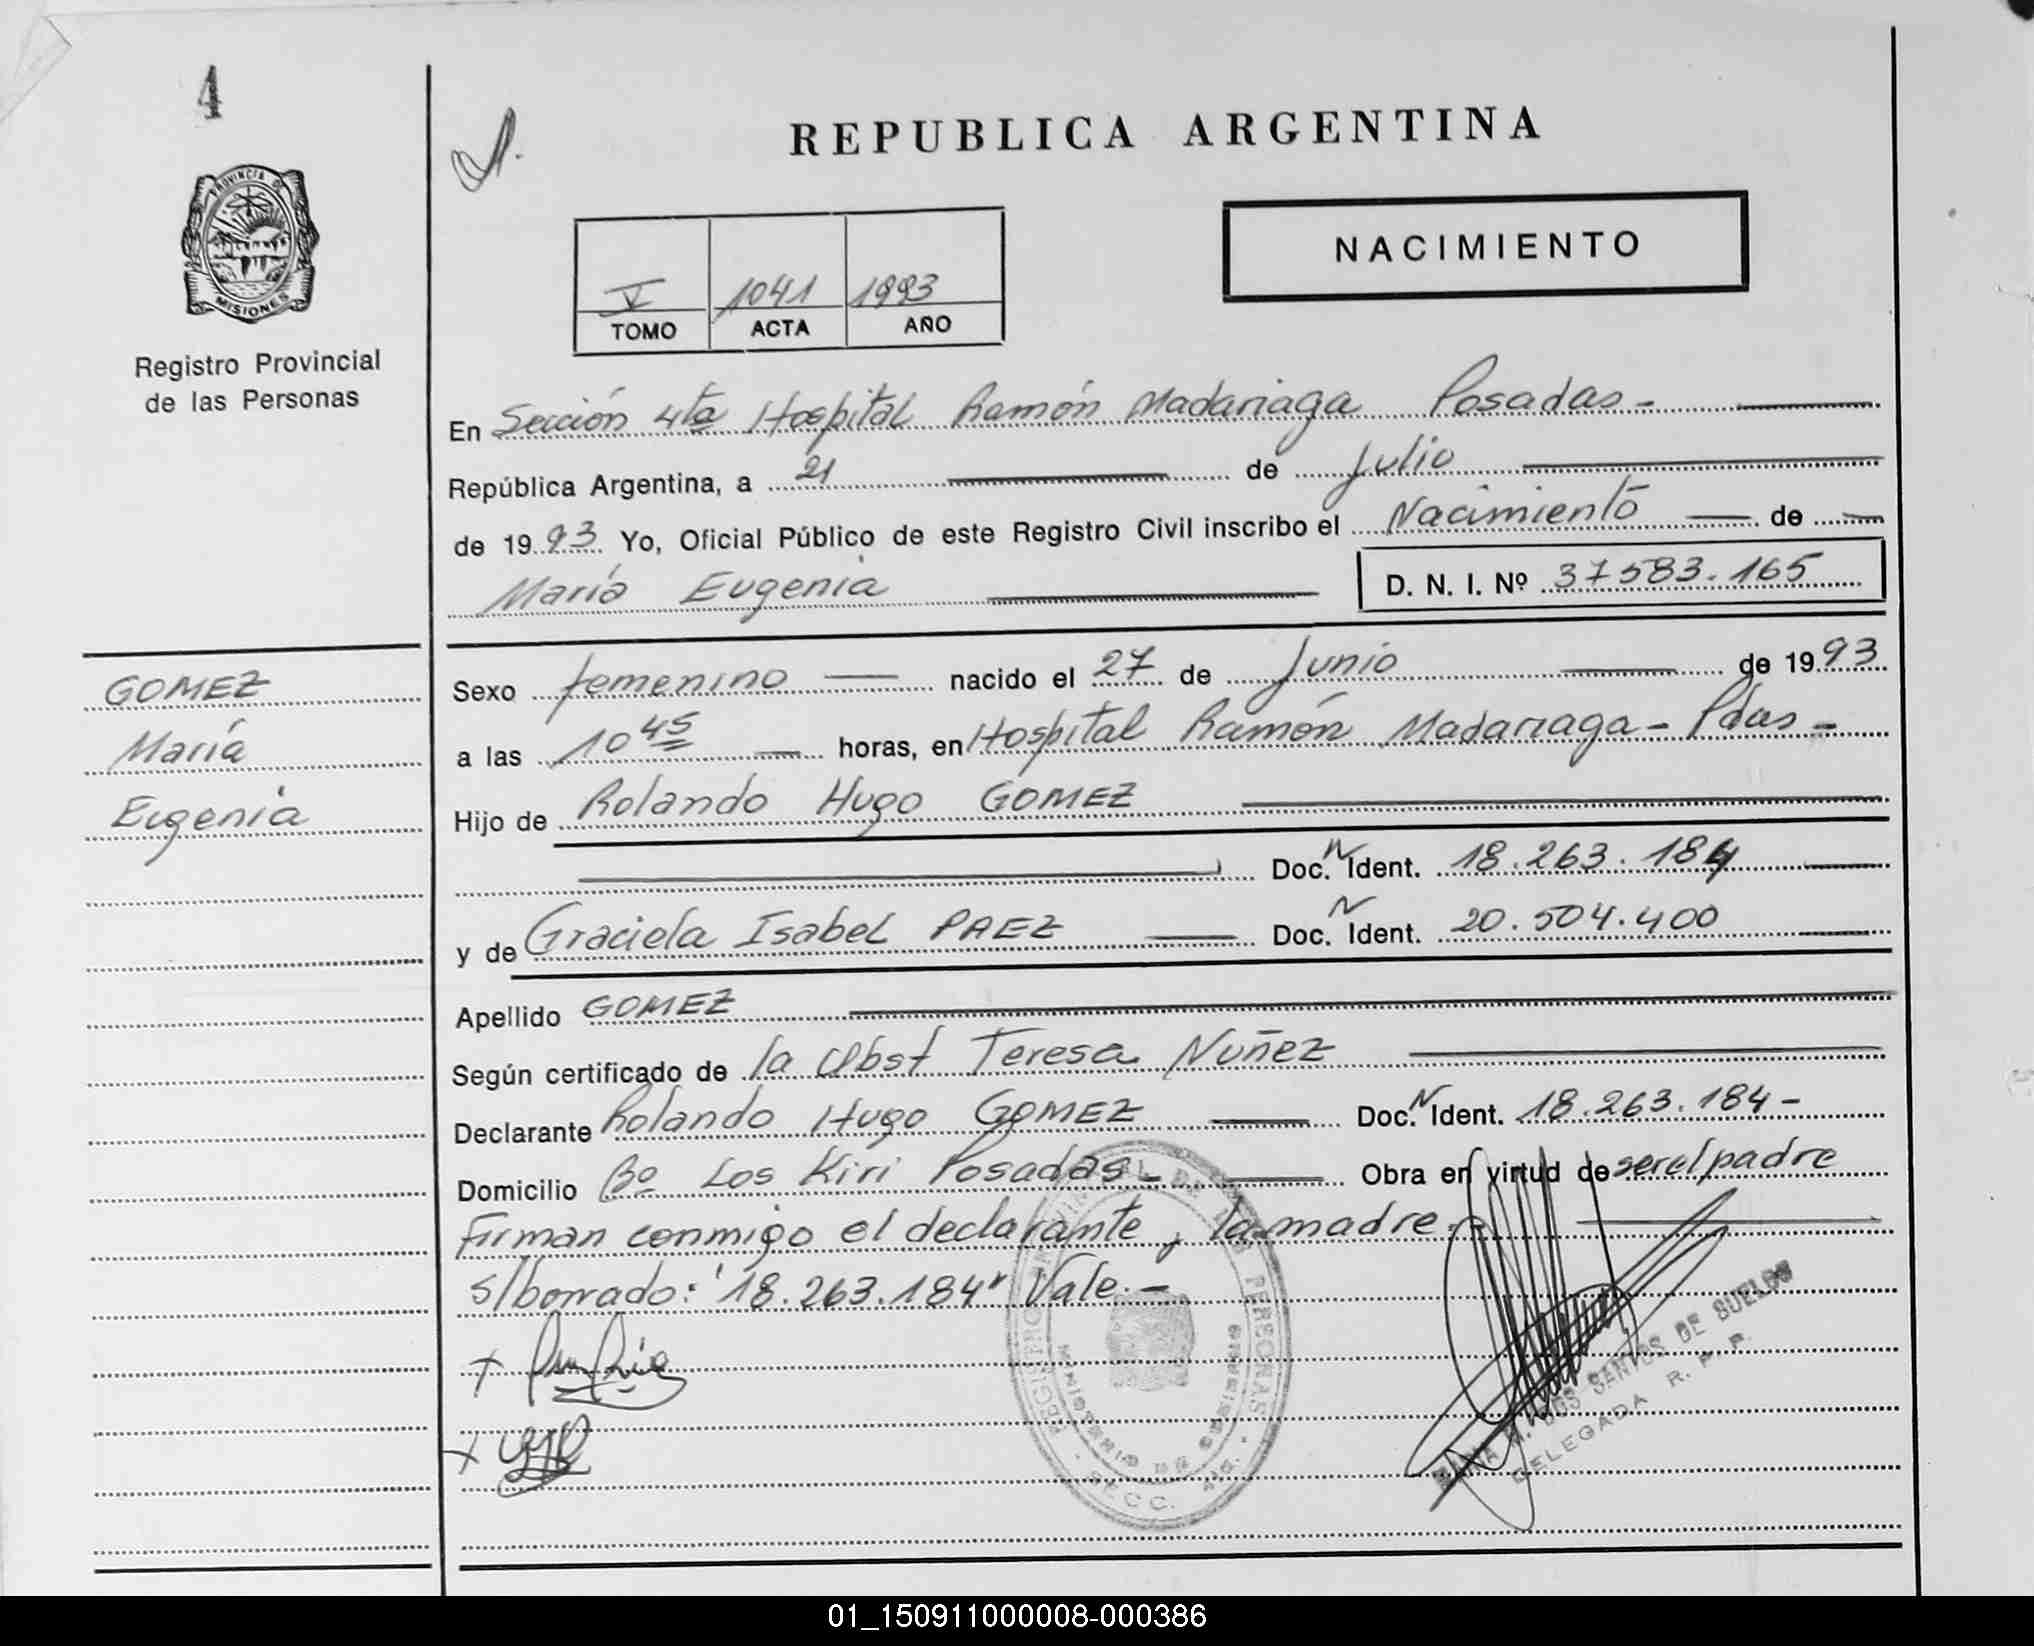 4
PROVINCIA DE
MISIONES
Registro Provincial
de las Personas
REPUBLICA ARGENTINA
NACIMIENTO
V 1041 1993
TOMO ACTA AÑO
En Sección 4ta Hospital Ramón Madariaga Posadas-
República Argentina, a 21 de Julio
de 1993 Yo, Oficial Público de este Registro Civil inscribo el Nacimiento de
María Eugenia D. N. I. Nº 37583.165
GOMEZ
María
Eugenia
Sexo femenino nacido el 27 de Junio de 1993
a las 10 45 horas, en Hospital Ramón Madariaga - Pdas -
Hijo de Rolando Hugo GOMEZ
Doc. N Ident. 18.263.184
y de Graciela Isabel PAEZ Doc. N Ident. 20.504.400
Apellido GOMEZ
Según certificado de la Obst Teresa Nuñez
Declarante Rolando Hugo GOMEZ Doc. N Ident. 18.263.184-
Domicilio Bº Los Kiri Posadas- Obra en virtud de ser el padre
Firman conmigo el declarante y la madre.-
s/borrado: "18.263.184" Vale.-
REGISTRO PROVINCIAL DE LAS PERSONAS
MINISTERIO DE GOBIERNO
SECC. 4ta.
DOS SANTOS DE SUELOS
DELEGADA R. P. P.
01_150911000008-000386